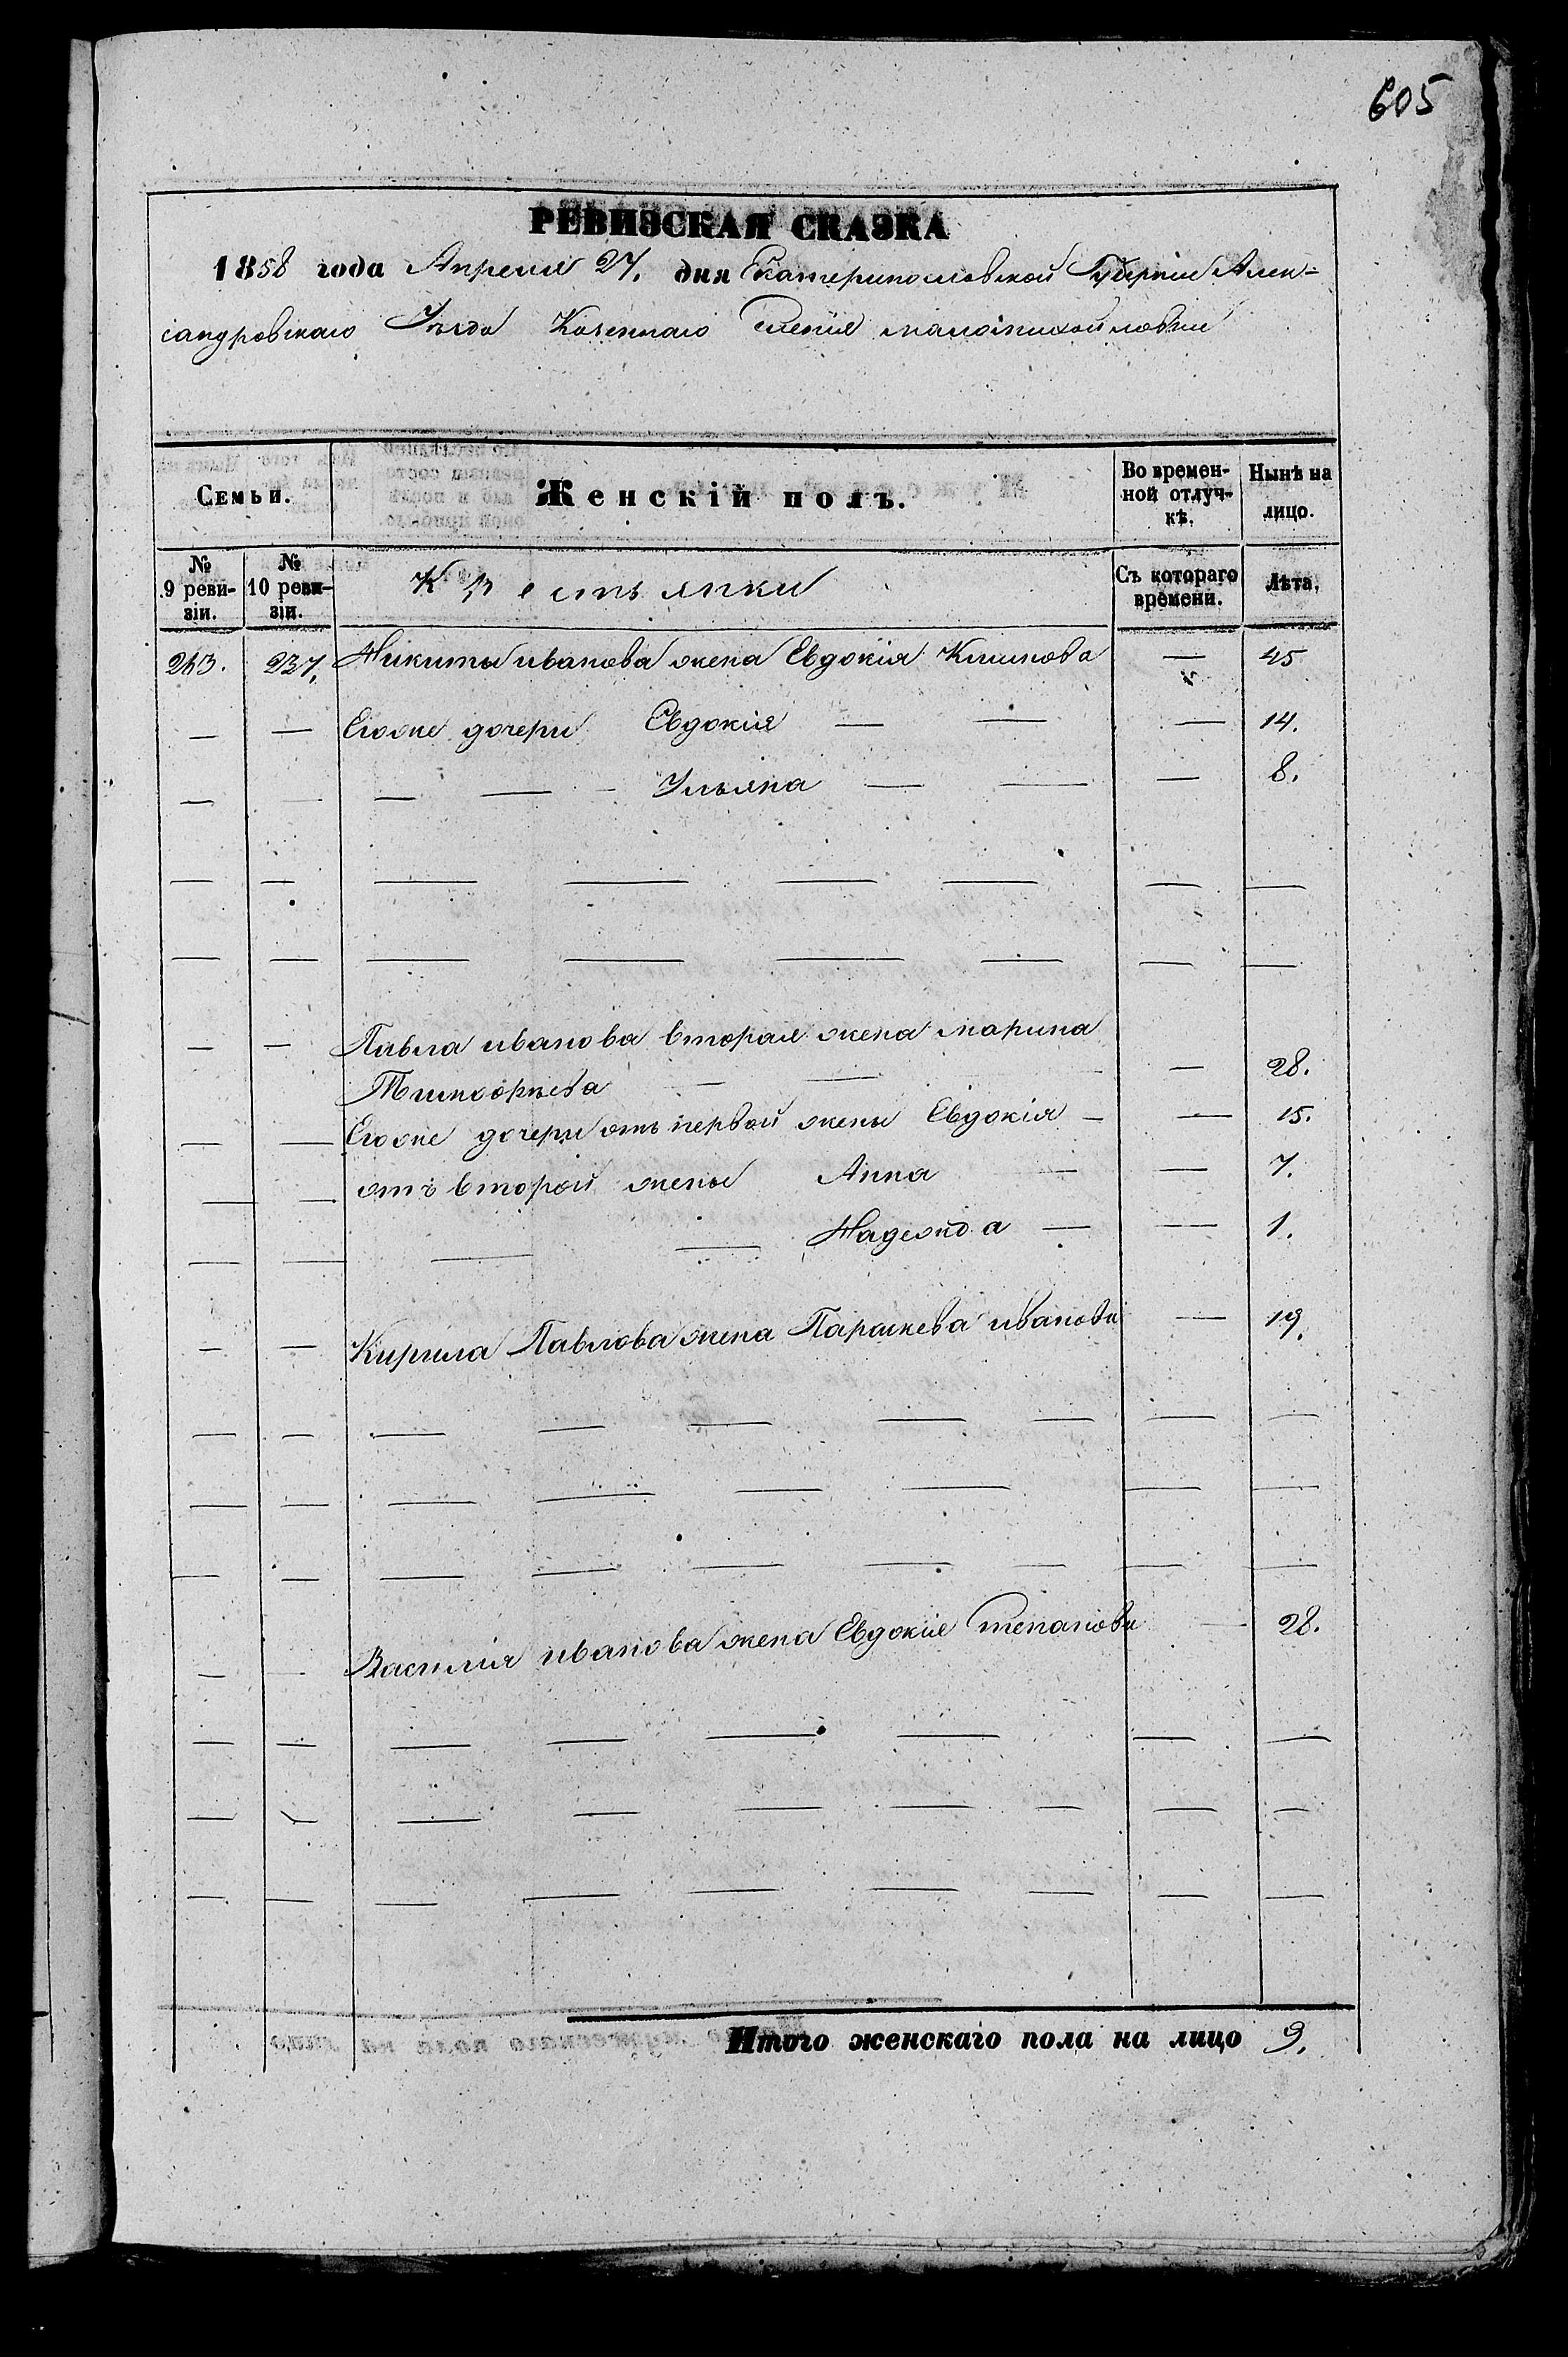 605
РЕВИЗСКАЯ СКАЗКА
1858 года Апреля 27. дня Екатеринославской Губернии Алек=
сандровскаго Уезда Казеннаго Селения маломихайловки
Семьи. Женскій полъ. Во времен-ной отлуч-кѣ. Нынѣ на лицо.
№ 9 реви-зіи. № 10 реви-зіи. Крестьянки Съ котораго времени. Лѣта.
243. 237. Никиты иванова жена Евдокія Климова — 45
— — Егоже дочери Евдокія — — — 14.
— — — — — Ульяна — — — 8.
— — — — — — — —
— — — — — — — —
— — Павла иванова вторая жена марина
Тимофѣева — — — 28.
— — Егоже дочери отъ первой жены Евдокія — — 15.
— — отъ второй жены Анна — — 7.
— — — — Надежда — — 1.
— — Кирила Павлова жена Параскева иванова — 19.
— — — — — — — — —
— — — — — — — —
— — — — — — — — —
— — Василия иванова жена Евдокия степанова — 28.
— — — — — — — —
— — — — — — — — —
— — — — — — — — —
Итого женскаго пола на лицо 9.